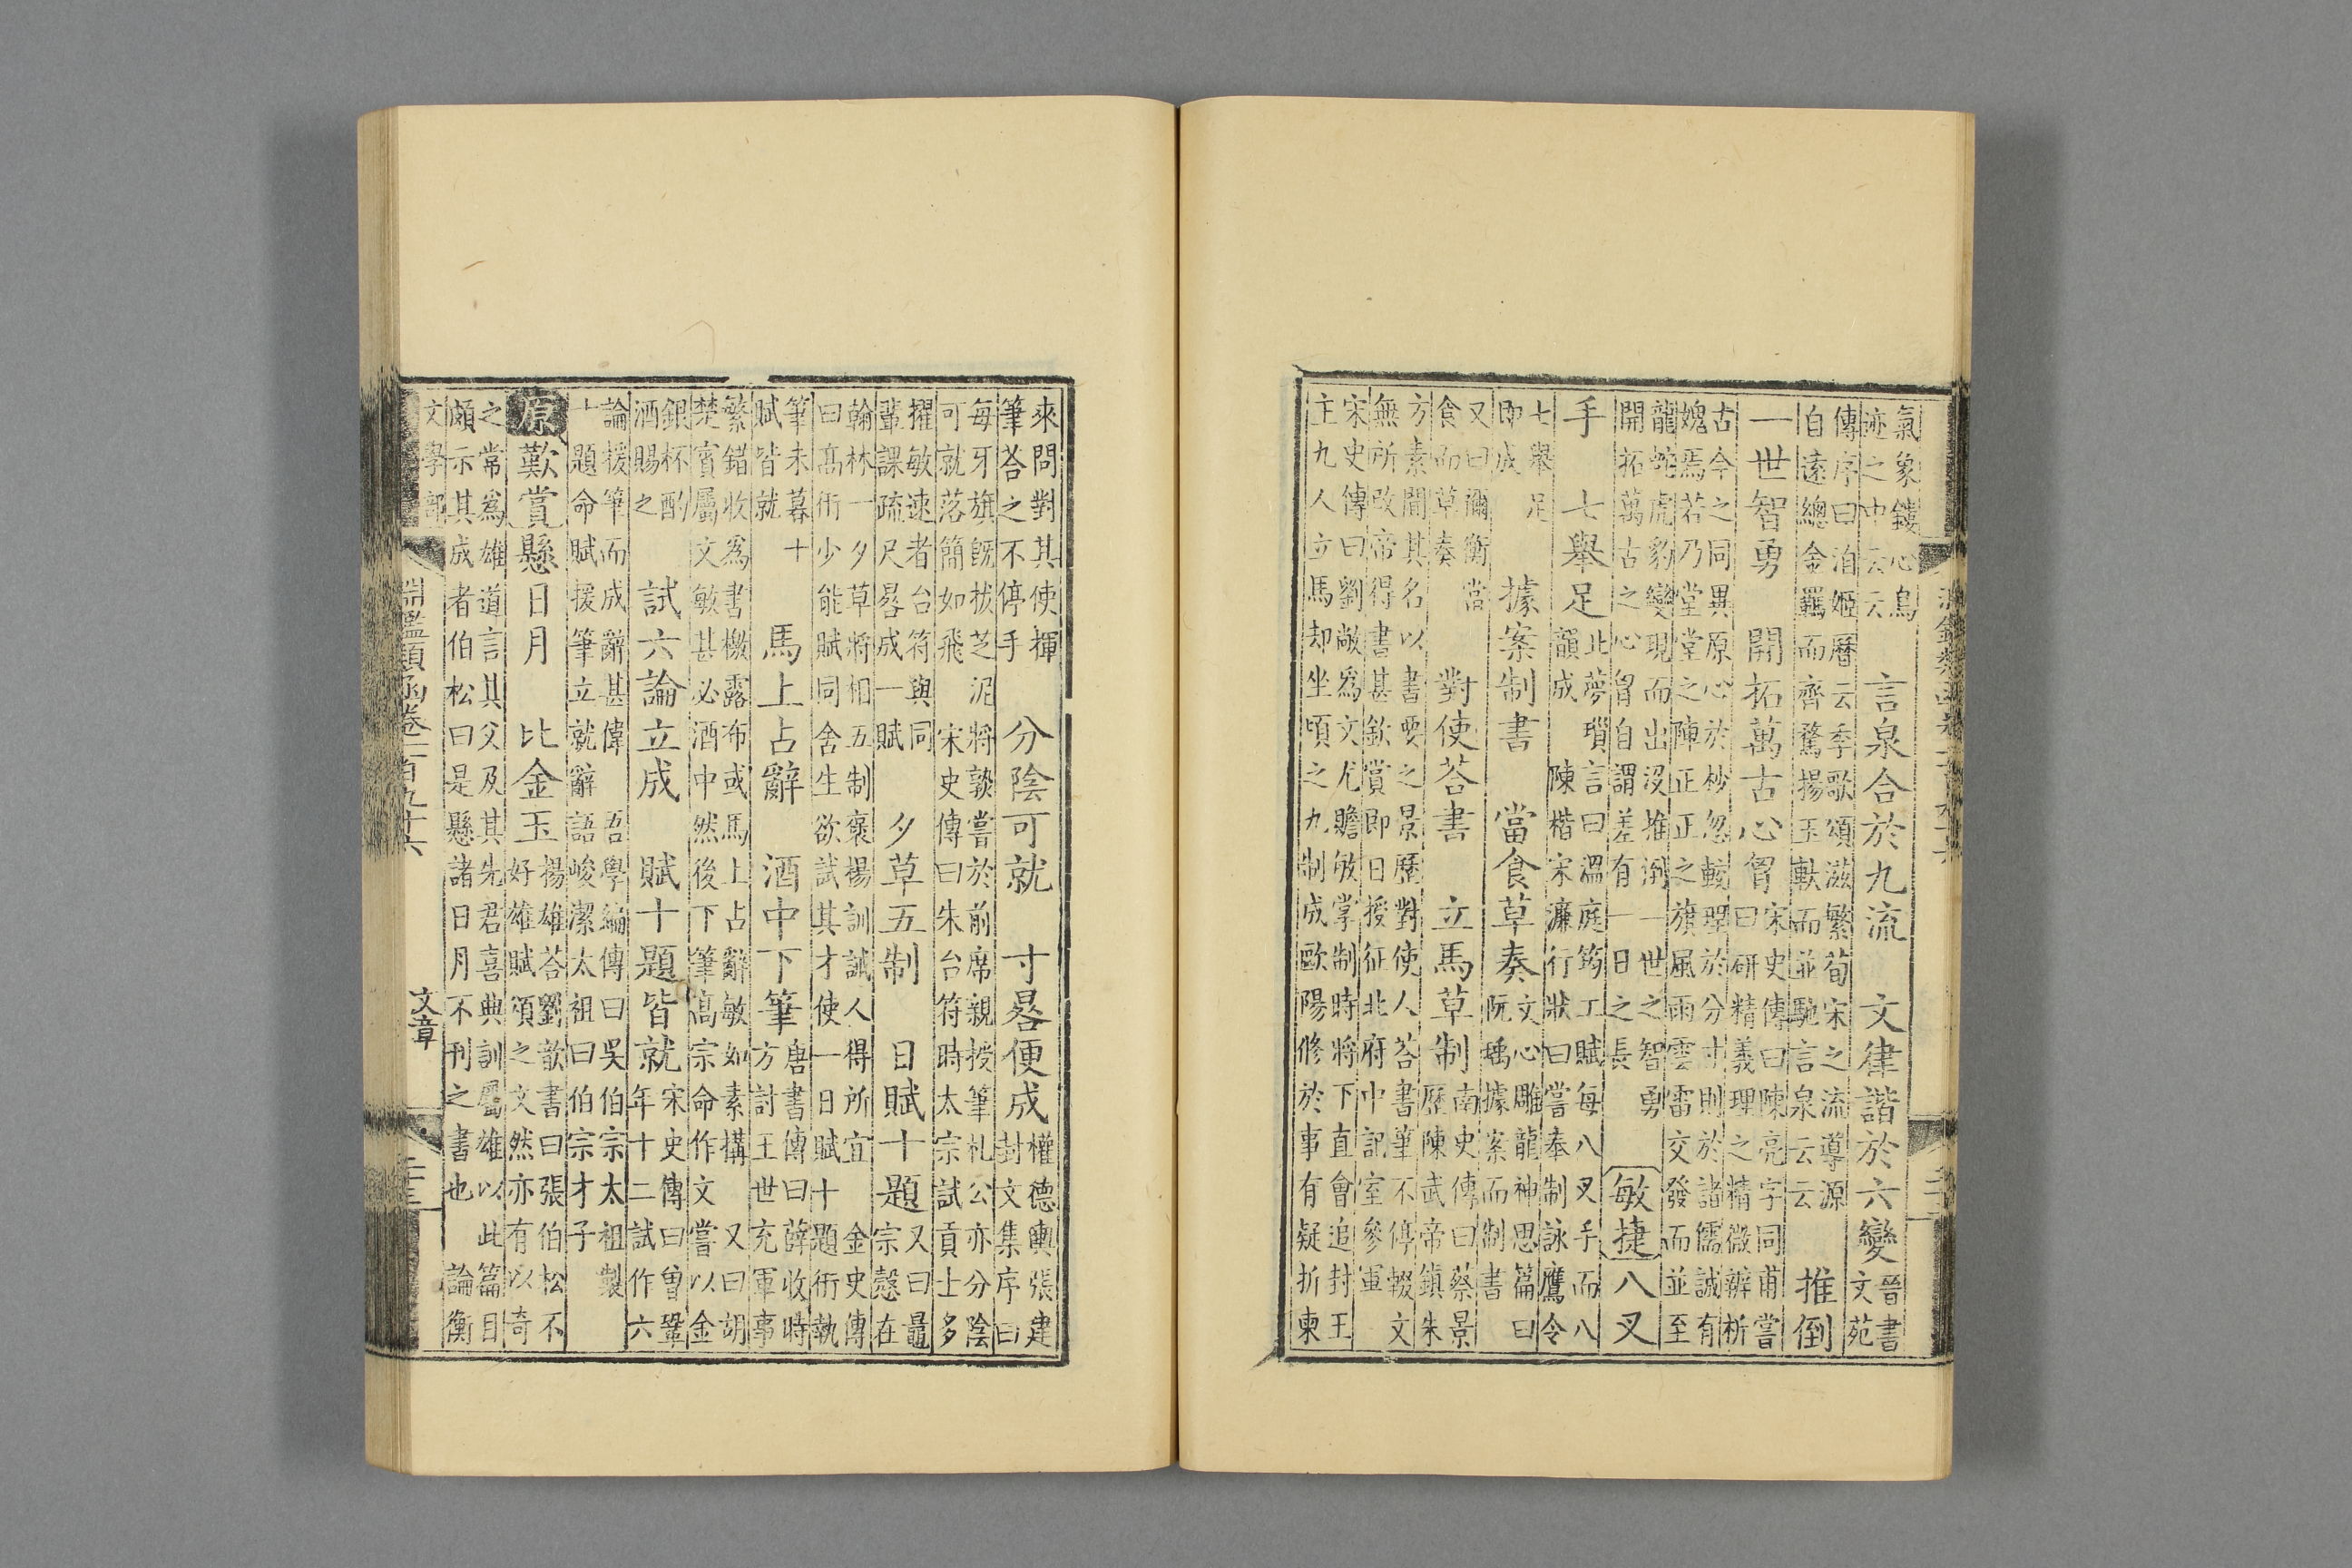 氣象鏤心鳥
迹之中云云
言泉合於九流　文律諧於六變
晉書
文苑
傳序曰洎姬曆云季歌頌滋繁荀宋之流導源
自遠總金羈而齊騖揚玉軑而並馳言泉云云
推倒
一世智勇　開拓萬古心胷
宋史傳曰陳亮字同甫嘗
曰研精義理之精微辨析
古今之同異原心於杪忽較理於分寸則於諸儒誠有
媿焉若乃堂堂之陣正正之旗風雨雲雷交發而並至
龍蛇虎豹變現而出没推倒一世之智勇
開拓萬古之心胷自謂差有一日之長
敏捷　八叉
手　七舉足
此夢瑣言曰溫庭筠工賦每八叉手而八
韻成　陳楷宋濂行狀曰嘗奉制詠鷹令
七舉足
即成
據案制書　當食草奏
文心雕龍神思篇曰
阮瑀據案而制書
又曰禰衡當
食而草奏
對使荅書　立馬草制
南史傳曰蔡景
歷陳武帝鎮朱
方素聞其名以書要之景歷對使人荅書筆不停輟文
無所改帝得書甚欽賞即日授征北府中記室參軍
宋史傳曰劉敞爲文尤贍敏掌制時將下直會追封王
主九人立馬却坐頃之九制成歐陽修於事有疑折柬
來問對其使揮
筆荅之不停手
分陰可就　寸晷便成
權德輿張建
封文集序曰
每牙旗旣拔芝泥將欵嘗於前席親授筆札公亦分陰
可就落簡如飛　宋史傳曰朱台符時太宗試貢士多
擢敏速者台符與同
輩課疏尺晷成一賦
夕草五制　日賦十題
又曰鼂
宗慤在
翰林一夕草將相五制褒揚訓誡人得所宜　金史傳
曰髙衎少能賦同舍生欲試其才使一日賦十題衎執
筆未暮十
賦皆就
馬上占辭　酒中下筆
唐書傳曰薛收時
方討王世充軍事
繁錯收爲書檄露布或馬上占辭敏如素構　又曰胡
楚賓屬文敏甚必酒中然後下筆髙宗命作文嘗以金
銀杯酌
酒賜之
試六論立成　賦十題皆就
宋史傳曰曾鞏
年十二試作六
論援筆而成辭甚偉　吾學編傳曰吳伯宗太祖製
十題命賦援筆立就辭語峻潔太祖曰伯宗才子
原歎賞懸日月　比金玉
揚雄荅劉歆書曰張伯松不
好雄賦頌之文然亦有以奇
之常爲雄道言其父及其先君喜典訓屬雄以此篇目
頗示其成者伯松曰是懸諸日月不刊之書也　論衡
文學部
淵鑑類函卷一百九十六
文章